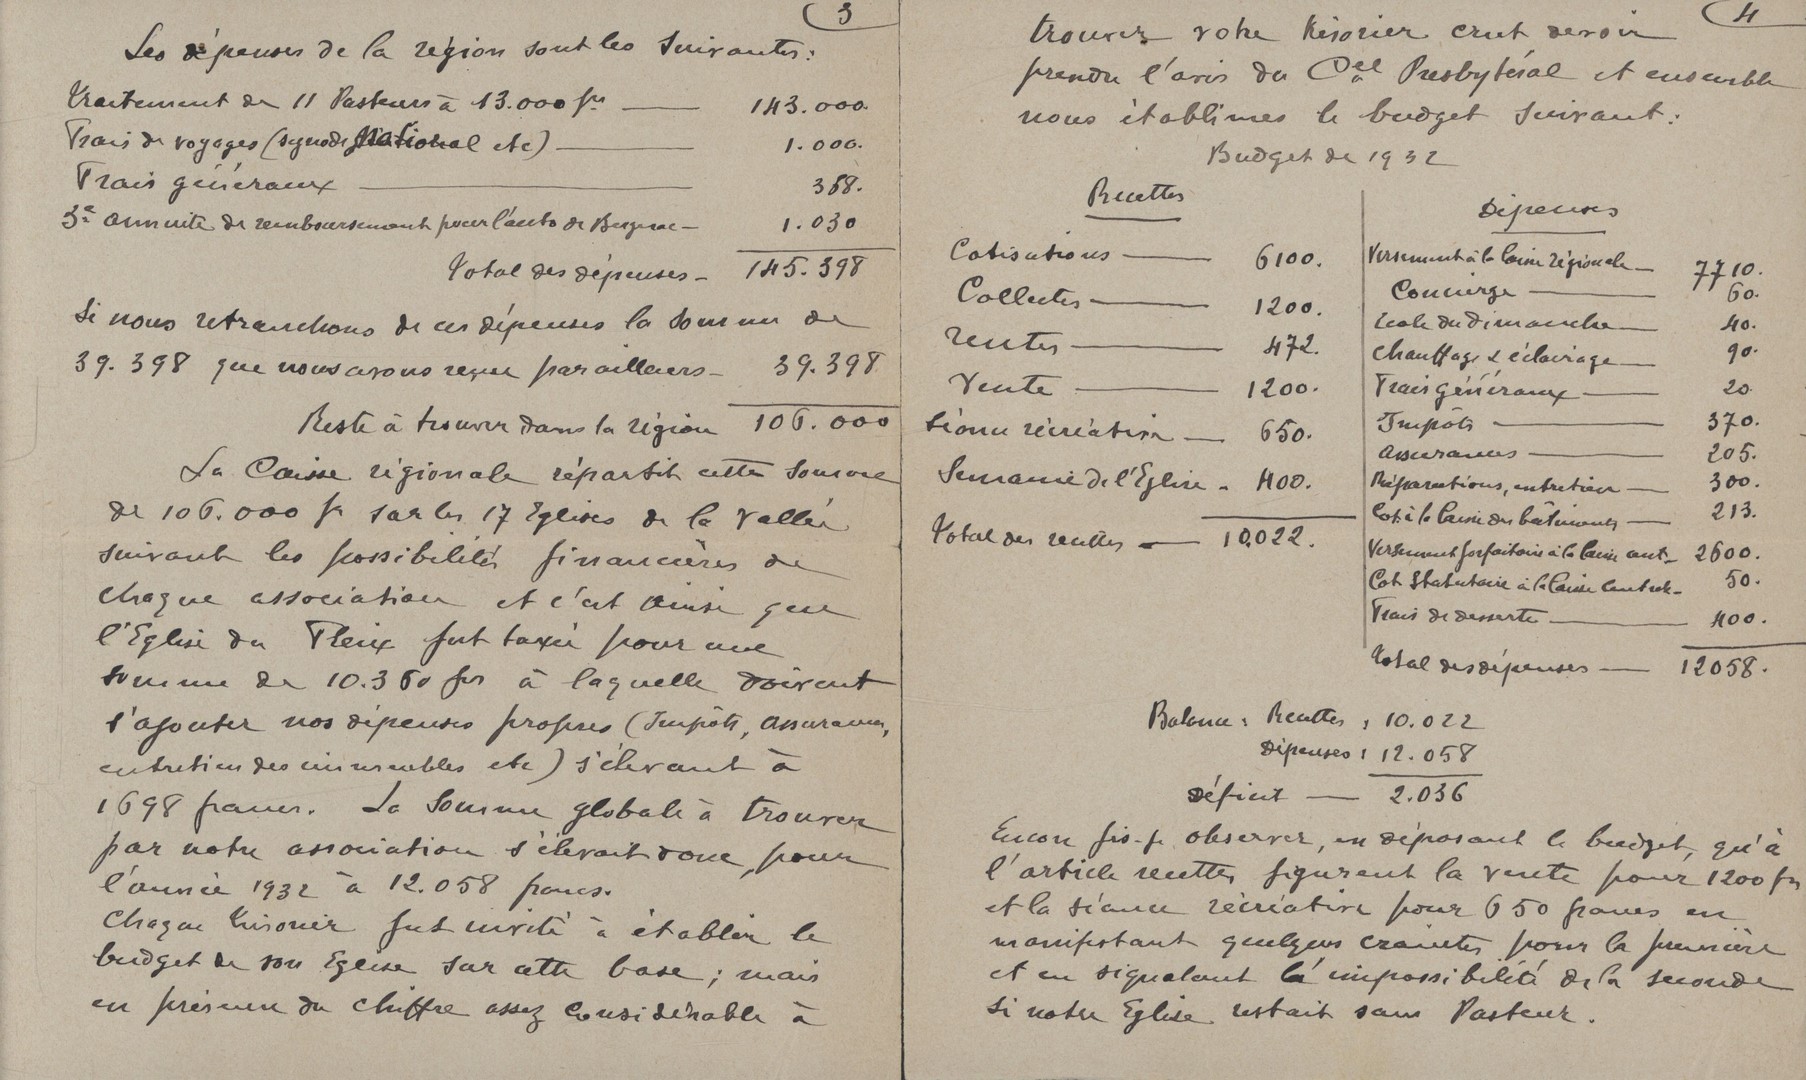 3
Les dépenses de la région sont les suivantes :
Traitement de 11 Pasteurs à 13.000 frs — 143.000.
Frais de voyages (synode National etc) — 1.000.
Frais généraux — 368.
3e annuité de remboursement pour l'auto de Bergerac — 1.030
Total des dépenses — 145.398
Si nous retranchons de ces dépenses la somme de
39.398 que nous avons reçue par ailleurs — 39.398
Reste à trouver dans la région 106.000
La Caisse régionale répartit cette somme
de 106.000 fr sur les 17 Eglises de la Vallée
suivant les possibilités financières de
chaque association et c'est ainsi que
l'Eglise du Fleix fut taxée pour une
somme de 10.360 frs à laquelle doivent
s'ajouter nos dépenses propres (Impôts, assurances,
entretien des immeubles etc) s'élevant à
1698 francs. La somme globale à trouver
par notre association s'élevait donc, pour
l'année 1932 à 12.058 francs.
Chaque trésorier fut invité à établir le
budget de son Eglise sur cette base ; mais
en présence du chiffre assez considérable à
4
trouver votre trésorier crut devoir
prendre l'avis du Cel Presbytéral et ensemble
nous établîmes le budget suivant :
Budget de 1932
Recettes
Cotisations — 6100.
Collectes — 1200.
rentes — 472.
Vente — 1200.
Séance récréative — 650.
Semaine de l'Eglise - 400.
Total des recettes — 10,022.
Dépenses
Versement à la Caisse régionale — 7710.
Concierge — 60.
Ecole du Dimanche — 40.
Chauffage & éclairage — 90.
Frais généraux — 20
Impôts — 370.
Assurances — 205.
Réparations, entretien — 300.
Cot. à la Caisse des bâtiments — 213.
Versement forfaitaire à la Caisse cent — 2600.
Cot Statutaire à la Caisse centrale — 50.
Frais de desserte — 400.
Total des dépenses — 12058.
Balance : Recettes : 10.022
Dépenses : 12.058
Déficit — 2.036
Encore fis-je observer, en déposant le budget, qu'à
l'article recettes figurent la vente pour 1200 frs
et la séance récréative pour 650 francs en
manifestant quelques craintes pour la première
et en signalant l'impossibilité de la seconde
si notre Eglise restait sans Pasteur.